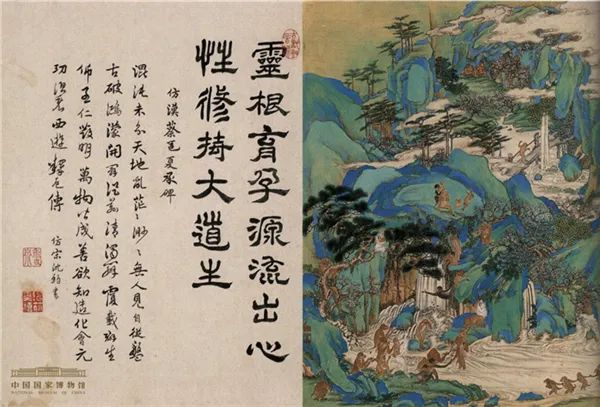 靈根育孕源流出心
性修持大道生
仿漢蔡邕夏承碑
混沌未分天地亂茫々渺々無人見自從盤
古破鴻濛開闢從茲清濁辨覆載群生
仰至仁發明萬物皆成善欲知造化會元
功須看西遊釋厄傳
仿宋沈書
中国国家博物馆
NATIONAL MUSEUM OF CHINA